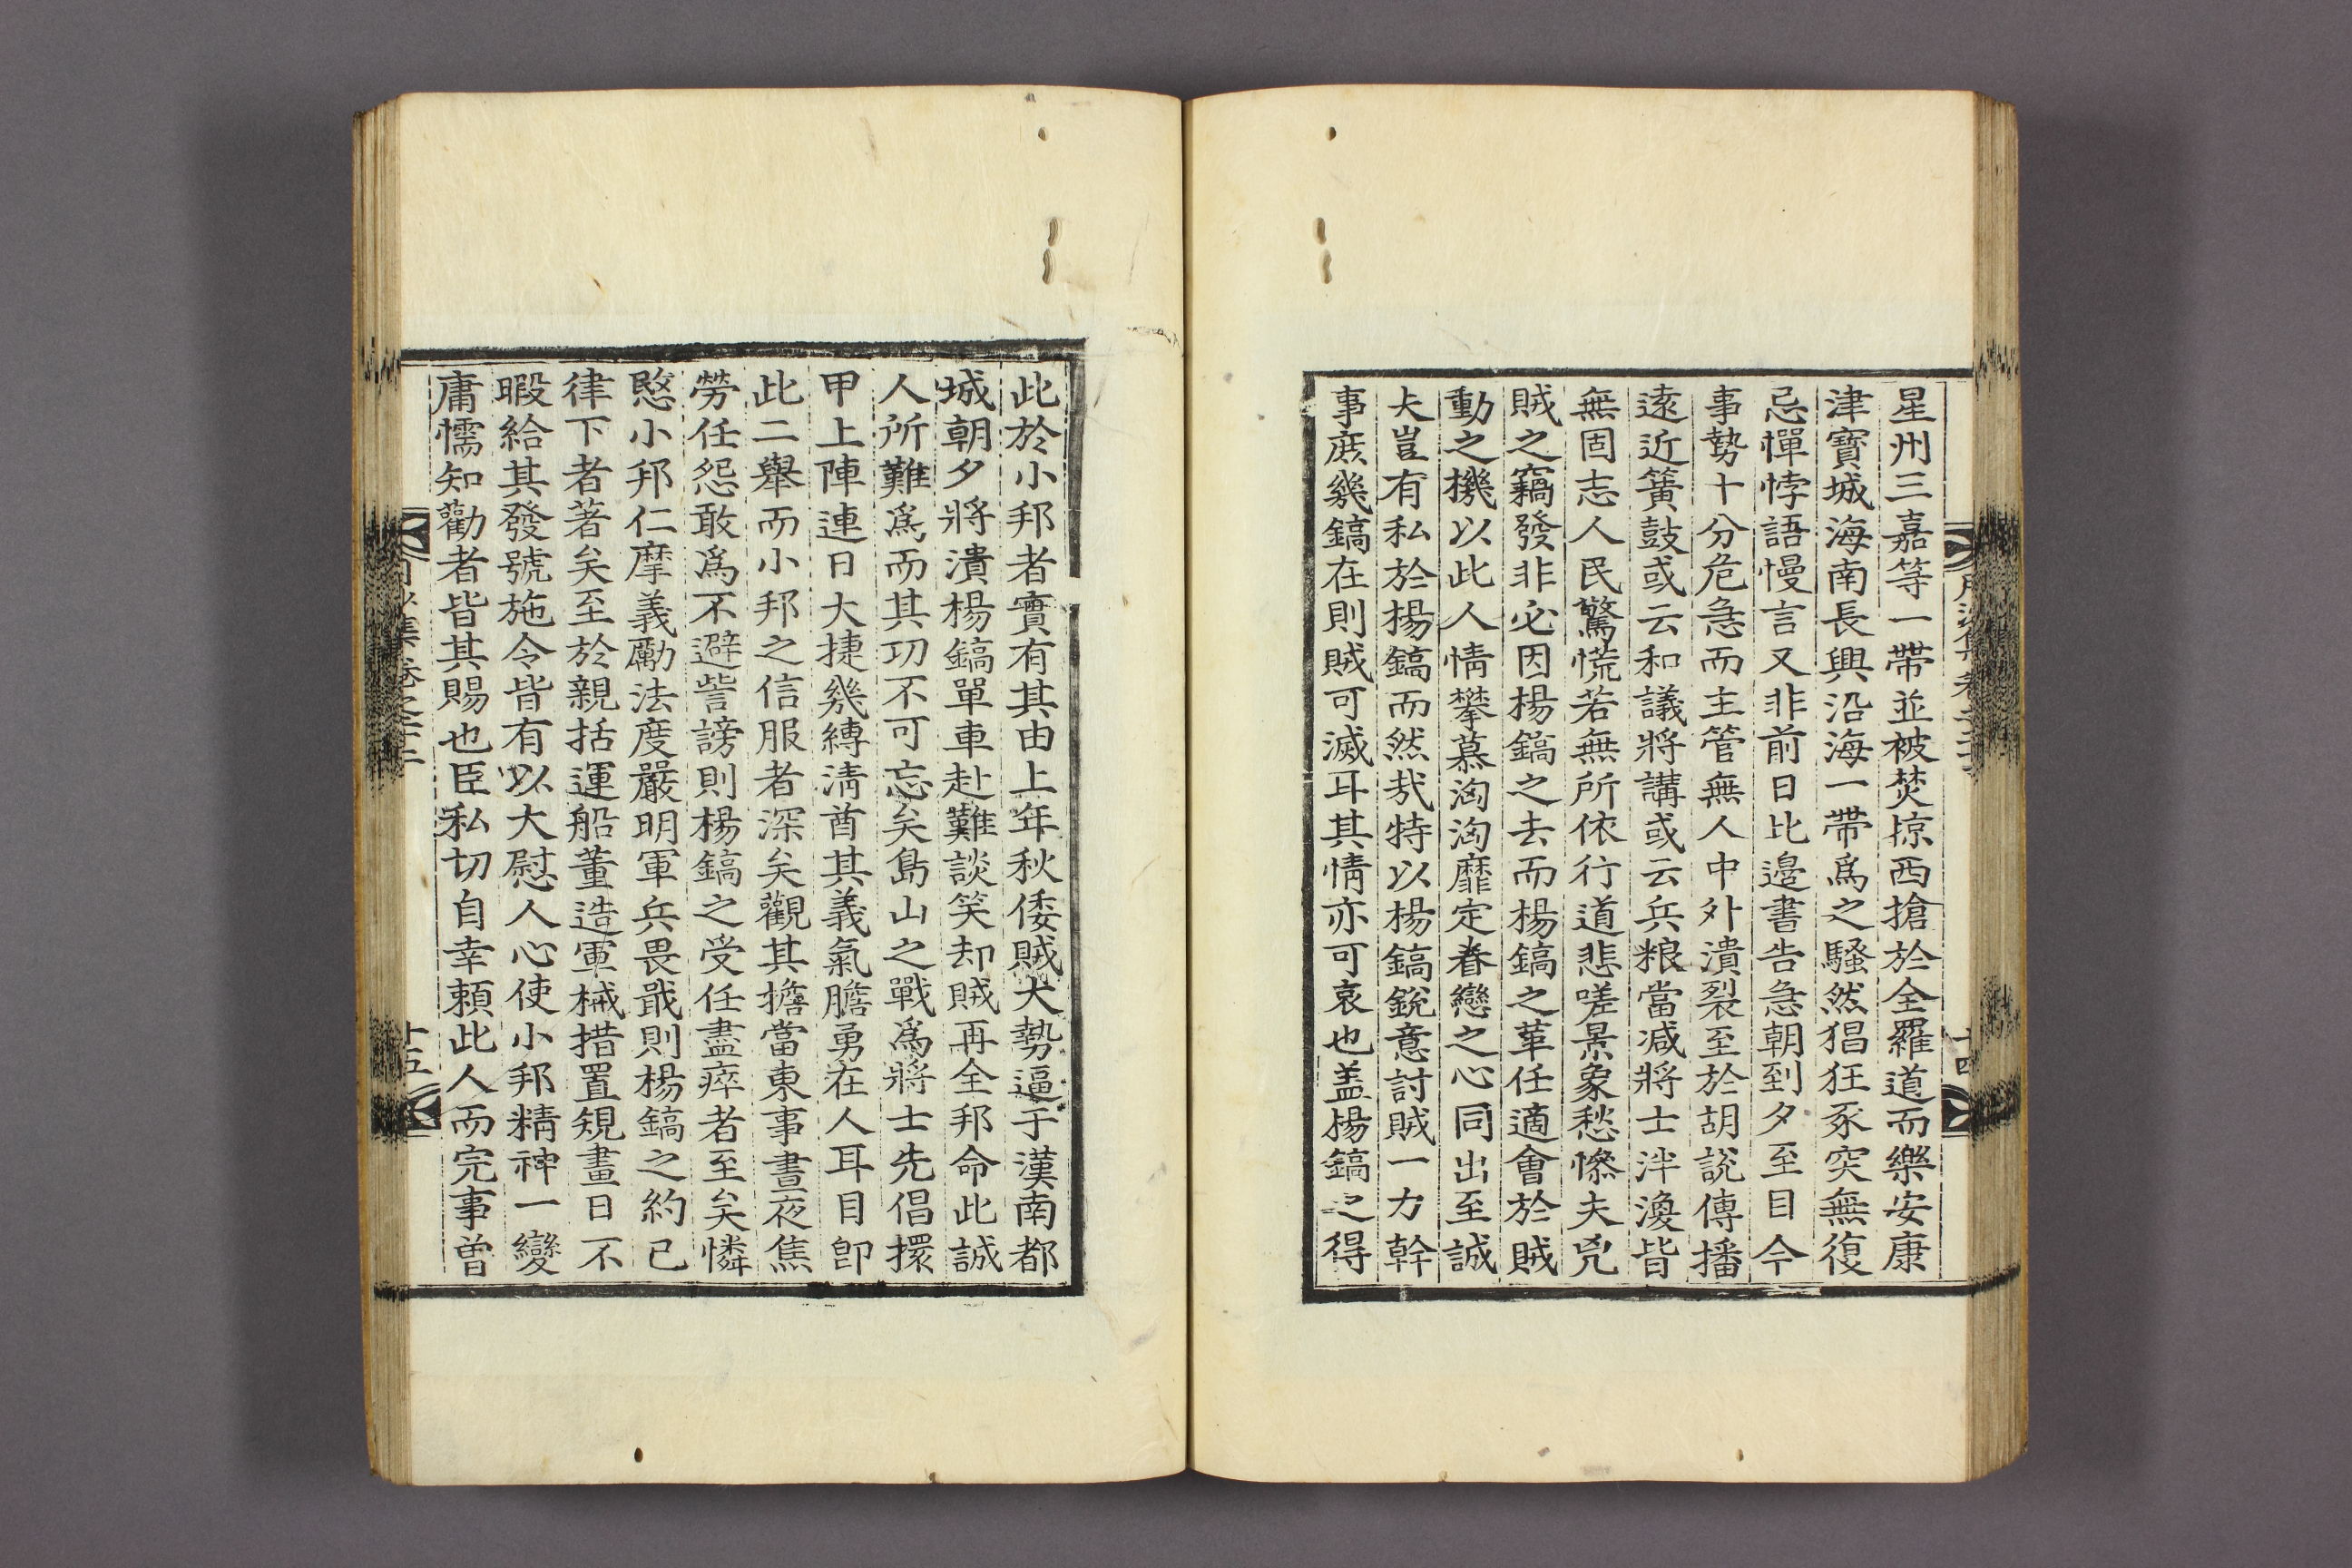 星州三嘉等一帶並被焚掠西搶於全羅道而樂安康
津寶城海南長興沿海一帶爲之騷然猖狂豕突無復
忌憚悖語慢言又非前日比邊書告急朝到夕至目今
事勢十分危急而主管無人中外潰裂至於胡說傳播
遠近簧鼓或云和議將講或云兵粮當减將士泮渙皆
無固志人民驚慌若無所依行道悲嗟景象愁慘夫兇
賊之竊發非必因楊鎬之去而楊鎬之革任適會於賊
動之機以此人情攀慕洶洶靡定眷戀之心同出至誠
夫豈有私於楊鎬而然㦲特以楊鎬銳意討賊一力幹
事庶幾鎬在則賊可滅耳其情亦可哀也盖楊鎬之得
此於小邦者實有其由上年秋倭賊大勢逼于漢南都
城朝夕將潰楊鎬單車赴難談笑却賊再全邦命此誠
人所難爲而其功不可忘矣島山之戰爲將士先倡擐
甲上陣連日大捷幾縛淸酋其義氣膽勇在人耳目卽
此二舉而小邦之信服者深矣觀其擔當東事晝夜焦
勞任怨敢爲不避訾謗則楊鎬之受任盡瘁者至矣憐
愍小邦仁摩義勵法度嚴明軍兵畏戢則楊鎬之約己
律下者著矣至於親括運船董造軍械措置規畫日不
暇給其發號施令皆有以大慰人心使小邦精神一變
庸懦知勸者皆其賜也臣私切自幸賴此人而完事曽
集卷之二十二
十五
十四